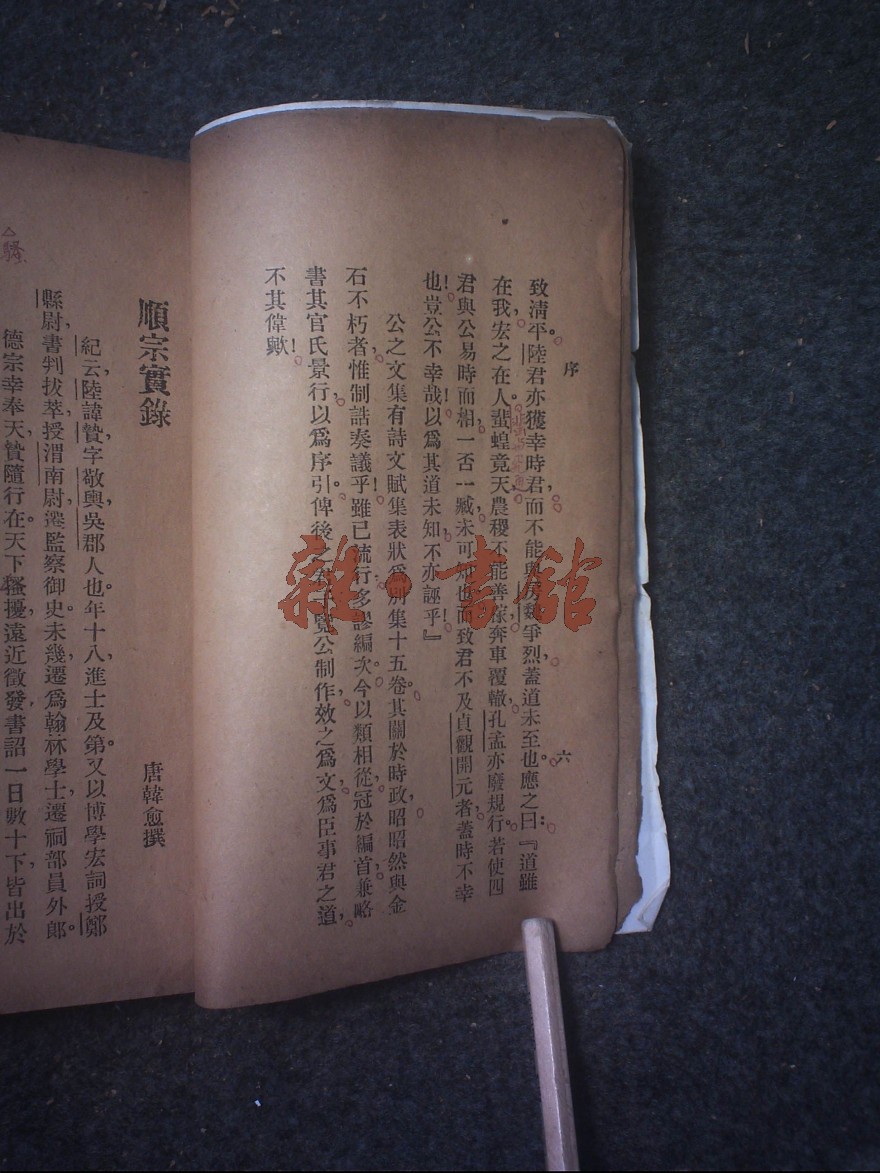 序
六
致清平。陸君亦獲幸時君而不能與房魏爭烈蓋道未至也應之曰：『道雖
在我宏之在人。蜚蝗竟天農稷不能善稼奔車覆轍孔孟亦廢規行。若使四
君與公易時而相一否一臧未可知也而致君不及貞觀開元者蓋時不幸
也！豈公不幸哉！以爲其道未知，不亦誣乎！』
公之文集有詩文賦集表狀爲別集十五卷。其關於時政昭昭然與金
石不朽者，惟制誥奏議乎！雖已流行多謬編次。今以類相從冠於編首兼略
書其官氏景行，以爲序引。俾後之君子覽公制作，效之爲文爲臣事君之道，
不其偉歟！
順宗實錄
唐韓愈撰
紀云，陸諱贄，字敬輿，吳郡人也。年十八，進士及第。又以博學宏詞授鄭
縣尉，書判拔萃，授渭南尉，遷監察御史。未幾，遷爲翰林學士，遷祠部員外郎。
德宗幸奉天，贄隨行在。天下騷擾，遠近徵發，書詔一日數十下，皆出於
騷
雜·書館